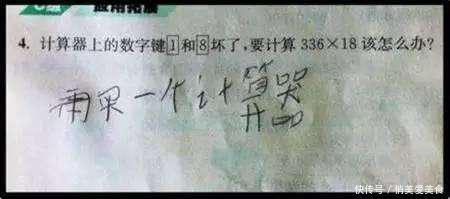 应用拓展
4. 计算器上的数字键1和8坏了,要计算336×18该怎么办?
再买一个计算器
快传号 / 俏美爱美食